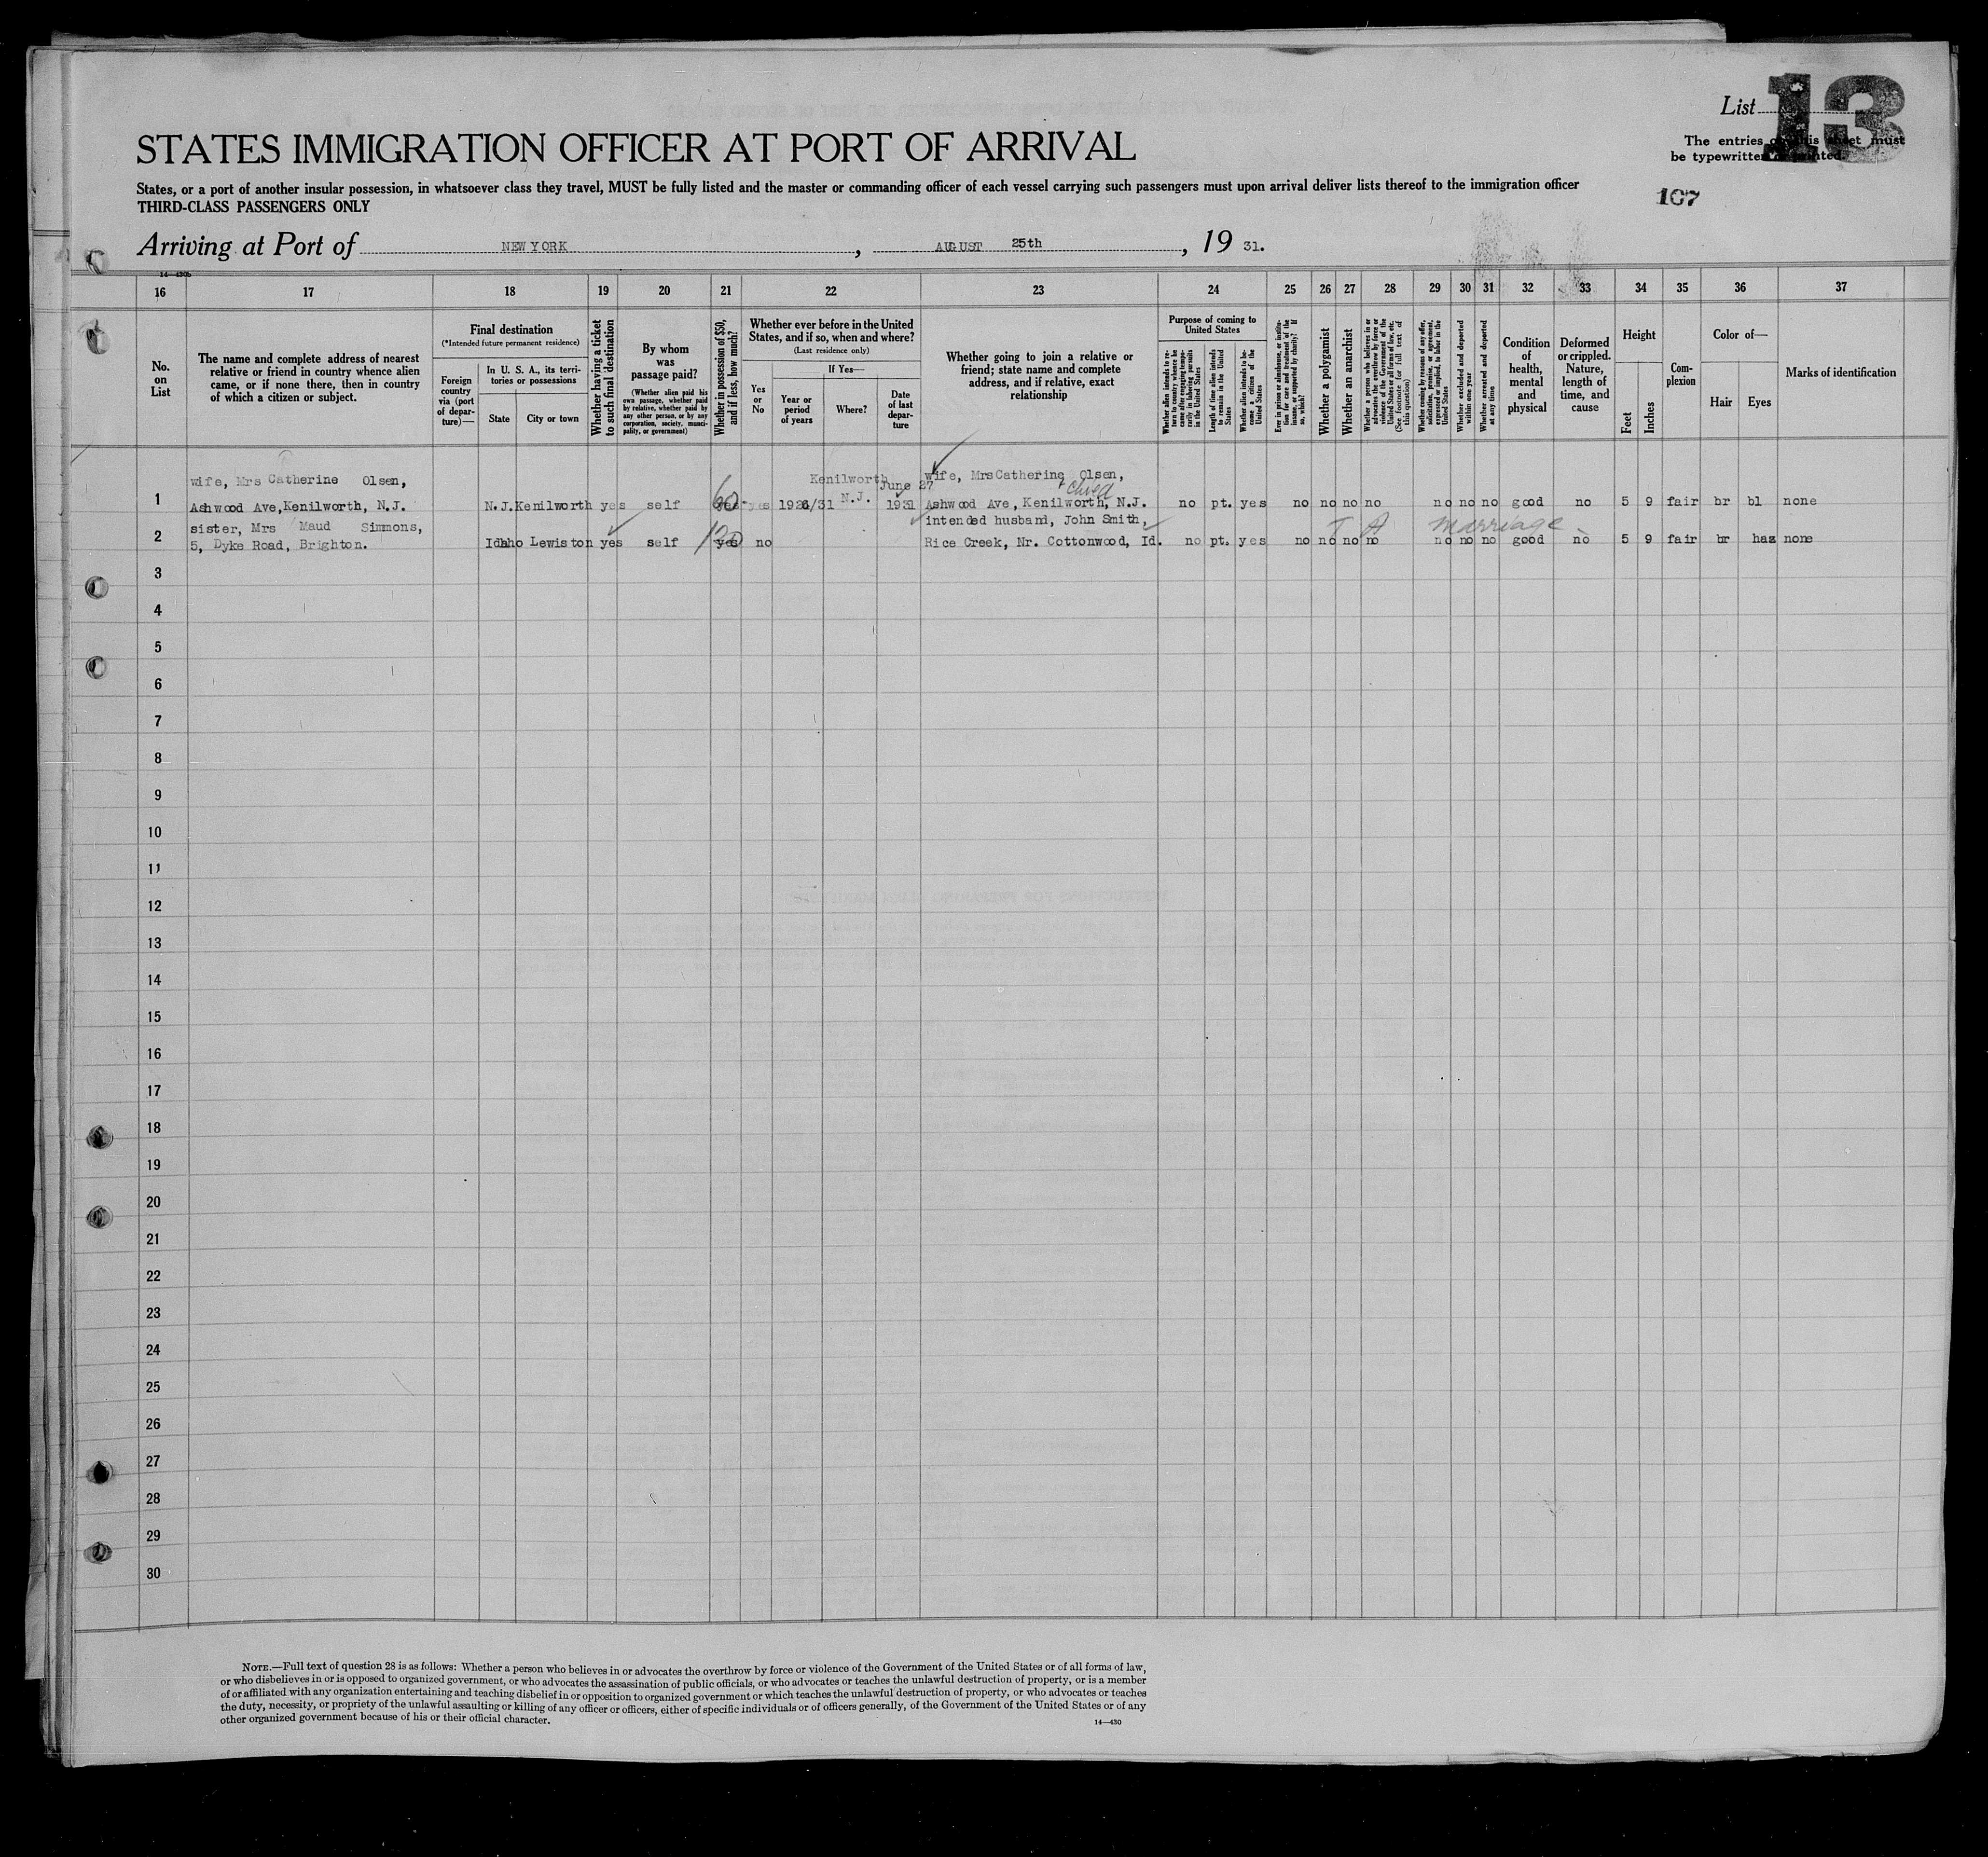 List 13
The entries on this sheet must
be typewritten or printed.
STATES IMMIGRATION OFFICER AT PORT OF ARRIVAL
States, or a port of another insular possession, in whatsoever class they travel, MUST be fully listed and the master or commanding officer of each vessel carrying such passengers must upon arrival deliver lists thereof to the immigration officer
THIRD-CLASS PASSENGERS ONLY
107
Arriving at Port of NEW YORK, AUGUST 25th, 19 31.
14—430b
16 17 18 19 20 21 22 23 24 25 26 27 28 29 30 31 32 33 34 35 36 37
No. on List
The name and complete address of nearest
relative or friend in country whence alien
came, or if none there, then in country
of which a citizen or subject.
Final destination
(*Intended future permanent residence)
Foreign country via (port of departure)—
In U. S. A., its territories or possessions
State
City or town
Whether having a ticket
to such final destination
By whom
was
passage paid?
(Whether alien paid his
own passage, whether paid
by relative, whether paid by
any other person, or by any
corporation, society, municipality, or government)
Whether in possession of $50,
and if less, how much?
Whether ever before in the United
States, and if so, when and where?
(Last residence only)
Yes or No
If Yes—
Year or period of years
Where?
Date of last departure
Whether going to join a relative or
friend; state name and complete
address, and if relative, exact
relationship
Purpose of coming to
United States
Whether alien intends to return to country whence he came after engaging temporarily in laboring pursuits in the United States
Length of time alien intends to remain in the United States
Whether alien intends to become a citizen of the United States
Ever in prison or almshouse, or institution for care and treatment of the insane, or supported by charity? If so, which?
Whether a polygamist
Whether an anarchist
Whether a person who believes in or advocates the overthrow by force or violence of the Government of the United States or all forms of law, etc. (See footnote for full text of this question)
Whether coming by reasons of any offer, solicitation, promise, or agreement, expressed or implied, to labor in the United States
Whether excluded and deported within one year
Whether arrested and deported at any time
Condition of health, mental and physical
Deformed or crippled. Nature, length of time, and cause
Height
Feet
Inches
Complexion
Color of—
Hair
Eyes
Marks of identification
wife, Mrs Catherine Olsen, Kenilworth June 27 wife, Mrs Catherine Olsen,
1 Ashwood Ave, Kenilworth, N.J. N.J. Kenilworth yes self 60 yes yes 1926/31 N.J. 1931 Ashwood Ave, Kenilworth, N.J. no pt. yes no no no no no no no good no 5 9 fair br bl none
sister, Mrs Maud Simmons, intended husband, John Smith, T A marriage
2 5, Dyke Road, Brighton. Idaho Lewiston yes self 120 yes no Rice Creek, Nr. Cottonwood, Id. no pt. yes no no no no no no no good no 5 9 fair br haz none
3
4
5
6
7
8
9
10
11
12
13
14
15
16
17
18
19
20
21
22
23
24
25
26
27
28
29
30
NOTE.—Full text of question 28 is as follows: Whether a person who believes in or advocates the overthrow by force or violence of the Government of the United States or of all forms of law,
or who disbelieves in or is opposed to organized government, or who advocates the assassination of public officials, or who advocates or teaches the unlawful destruction of property, or is a member
of or affiliated with any organization entertaining and teaching disbelief in or opposition to organized government or which teaches the unlawful destruction of property, or who advocates or teaches
the duty, necessity, or propriety of the unlawful assaulting or killing of any officer or officers, either of specific individuals or of officers generally, of the Government of the United States or of any
other organized government because of his or their official character.
14—430